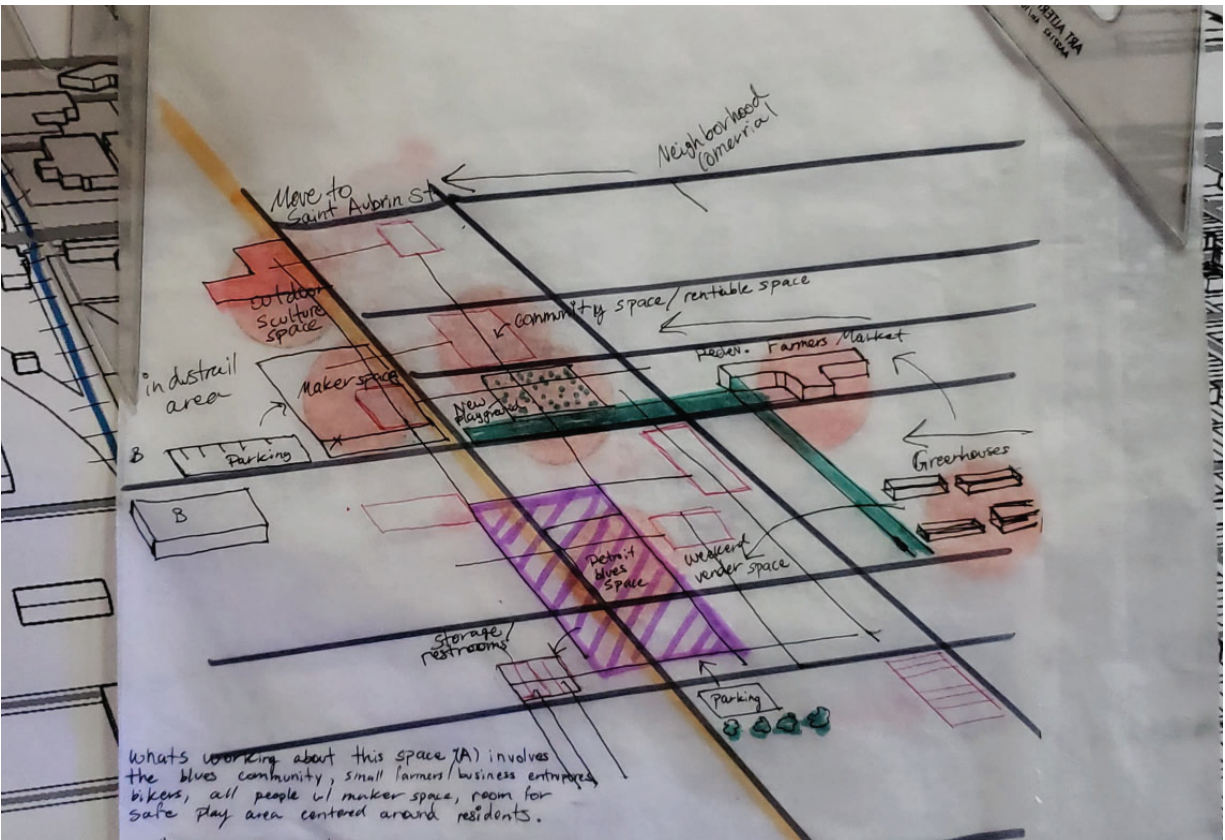 ART ALTER
Neighborhood
Comerrial
Move to
Saint Aubrin St
Outdoor
Sculture
space
Community space/rentiable space
Redev. Farmers Market
industrail
area
Makerspace
New
Playground
B
Parking
Greenhouses
B
Detroit
blues
Space
Weekend
vender space
Storage/
restrooms
Parking
Whats working about this space (A) involves
the blues community, small farmers/business entrupores
bikers, all people w/ maker space, room for
safe play area centered around residents.